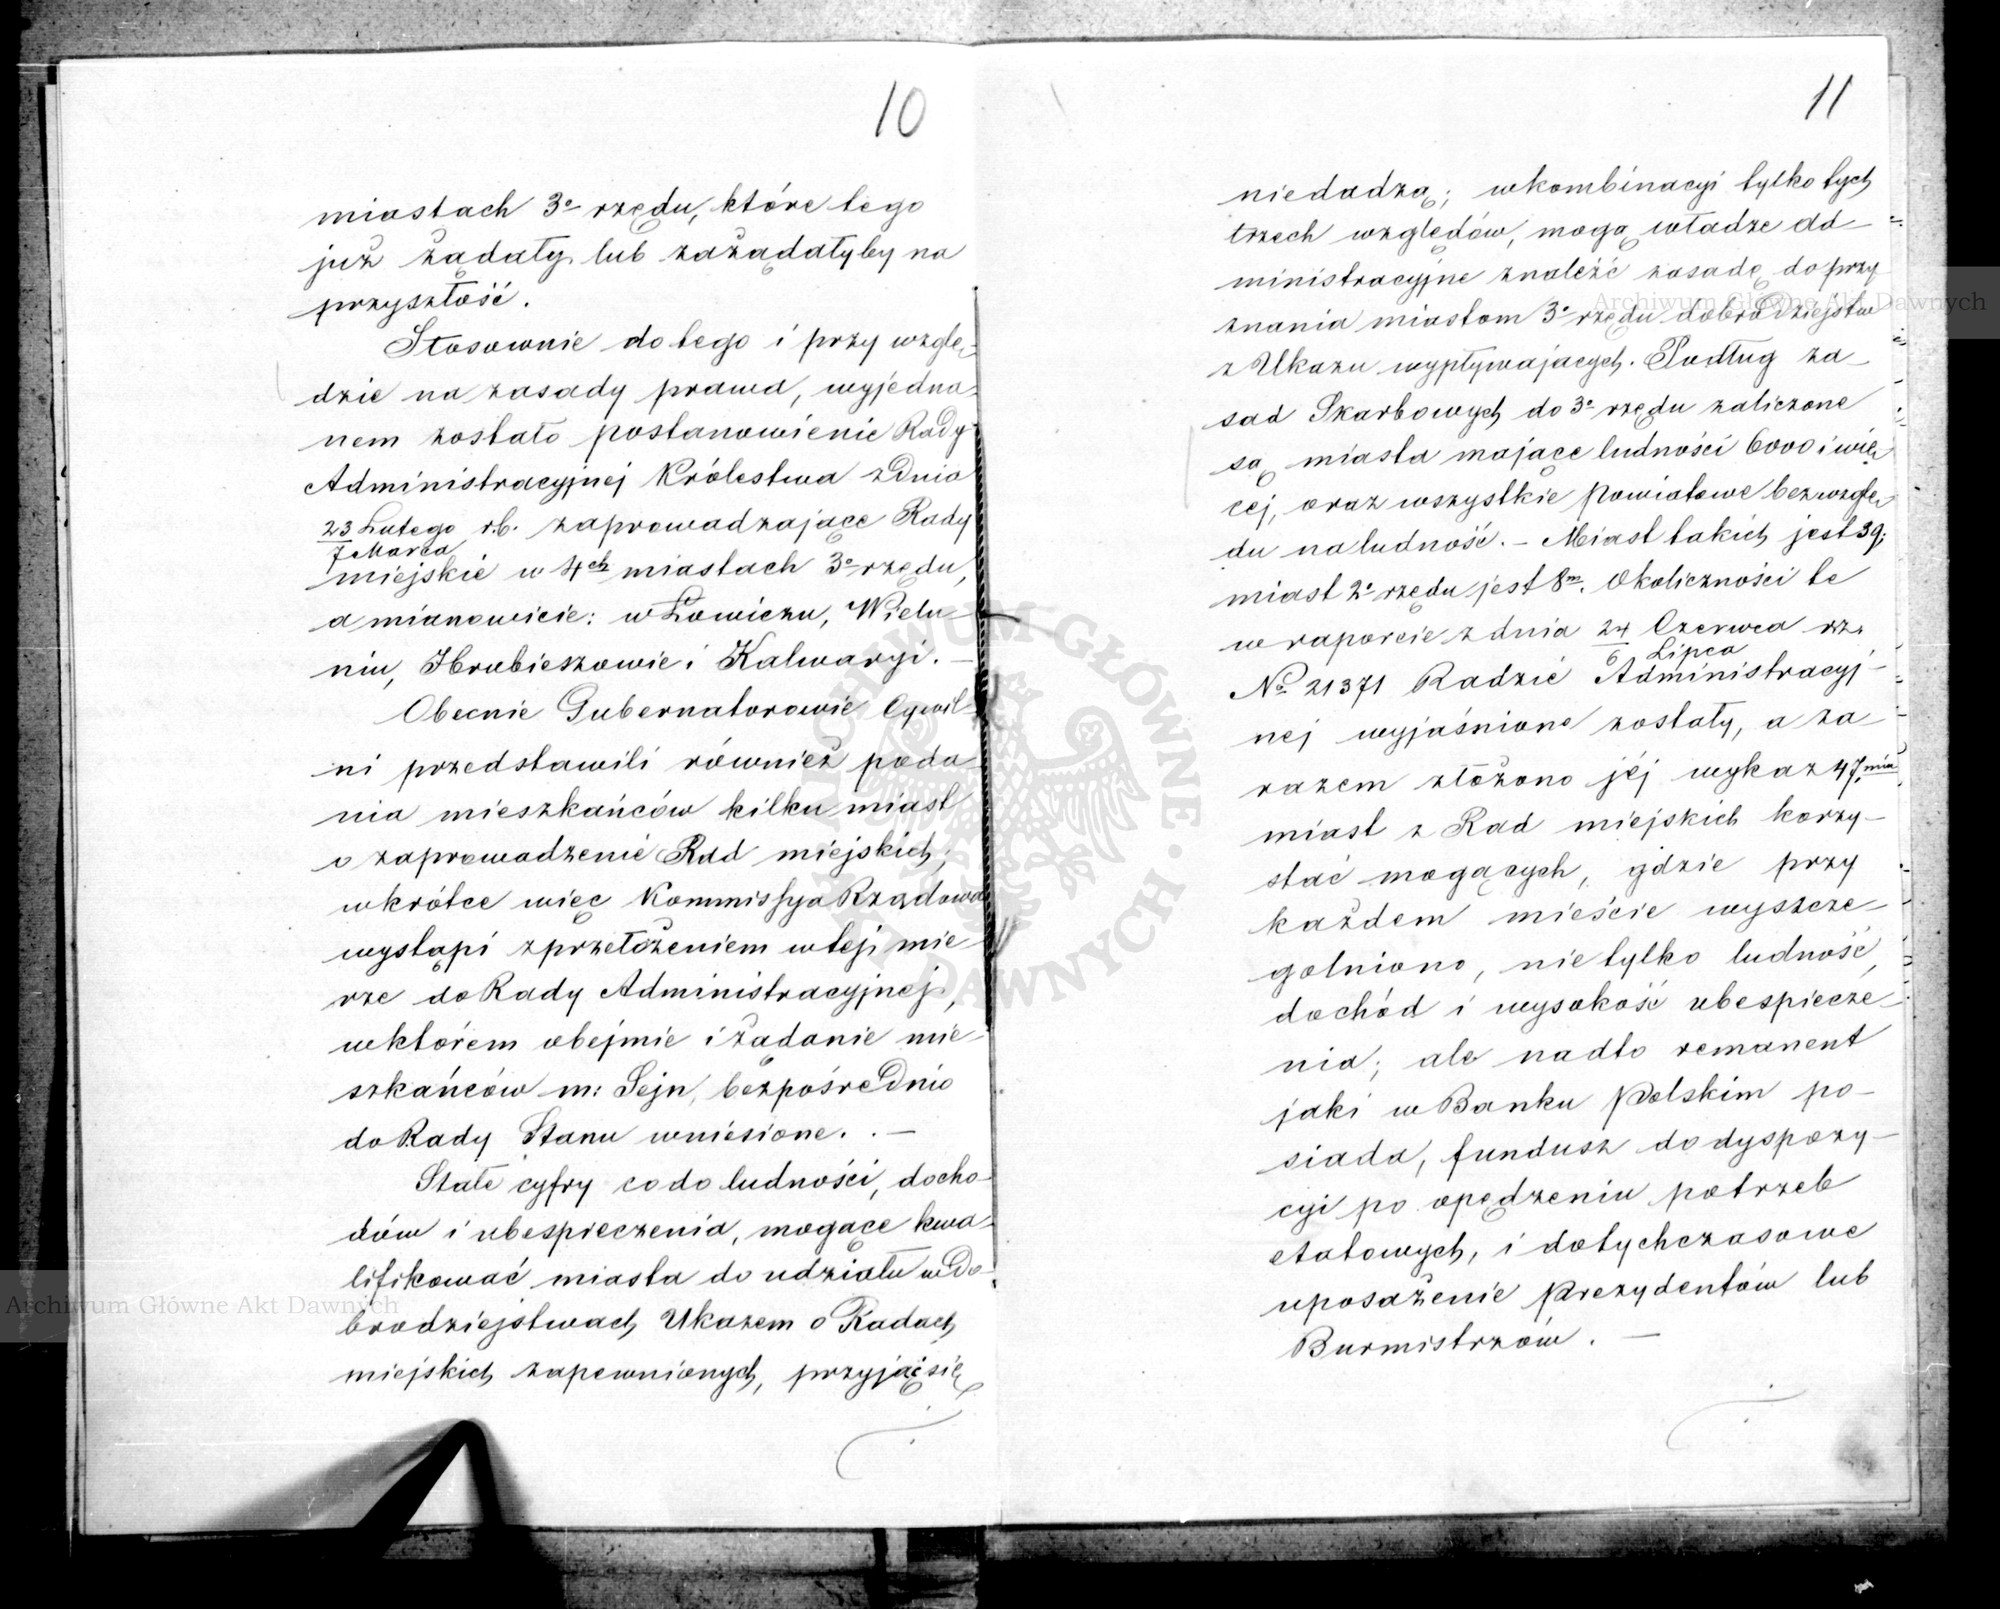 10
miastach 3º rzędu, które tego
już żądały lub zażądałyby na
przyszłość.
Stosownie do tego i przy wzglę-
dzie na zasady prawa, wyjedna-
nem zostało postanowienie Rady
Administracyjnej Królestwa z dnia
23 Lutego r.b. zaprowadzające Rady
7 Marca
miejskie w 4ch miastach 3º rzędu,
a mianowicie: w Łowiczu, Wielu-
niu, Hrubieszowie i Kalwaryi. —
Obecnie Gubernatorowie Cywil-
ni przedstawili również poda-
nia mieszkańców kilku miast
o zaprowadzenie Rad miejskich;
wkrótce więc Kommissya Rządowa
wystąpi z przełożeniem w tej mie-
rze do Rady Administracyjnej,
w którem obejmie i żądanie mie-
szkańców m: Sejn, bezpośrednio
do Rady Stanu wniesione. . —
Stałe cyfry co do ludności, docho-
dów i ubespieczenia, mogące kwa-
lifikować miasta do udziału w do-
brodziejstwach Ukazem o Radach
miejskich zapewnionych, przyjąć się
11
niedadzą; w kombinacyi tylko tych
trzech względów, mogą władze ad-
ministracyjne znaleźć zasadę do przy-
znania miastom 3º rzędu dobrodziejstw
z Ukazu wypływających. Podług za-
sad Skarbowych do 3º rzędu zaliczone
są miasta mające ludności 6000 i wię-
cej, oraz wszystkie powiatowe bez wzglę-
du na ludność. — Miast takich jest 39;
miast 2º rzędu jest 8m. Okoliczności te
w raporcie z dnia 24 Czerwca rz.
6 Lipca
No 21371 Radzie Administracyj-
nej wyjaśnione zostały, a za-
razem złożono jéj wykaz 47.miu
miast z Rad miejskich korzy-
stać mogących, gdzie przy
każdem mieście wyszcze-
gólniono, nie tylko ludność,
dochód i wysokość ubespiecze-
nia; ale nadto remanent
jaki w Banku Polskim po-
siada, fundusz do dyspozy-
cyi po opędzeniu potrzeb
etatowych, i dotychczasowe
uposażenie Prezydentów lub
Burmistrzów. —
Archiwum Główne Akt Dawnych
Archiwum Główne Akt Dawnych
ARCHIWUM GŁÓWNE AKT DAWNYCH